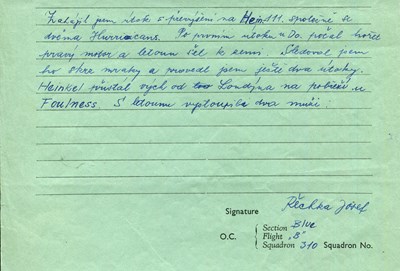 Zahájil jsem útok s převýšení na Hein 111. společně se
dvěma Hurricans. Po prvním útoku "Do. počal hořet
pravý motor a letoun šel k zemi. Sledoval jsem
ho skze mraky a provedl jsem ještě dva útoky.
Heinkel přistál vých od Londýna na pobřeží u
Foulness. S letounu vystoupili dva muži.
Signature Řechka Josef
O.C. Section Blue
Flight "B"
Squadron 310 Squadron No.